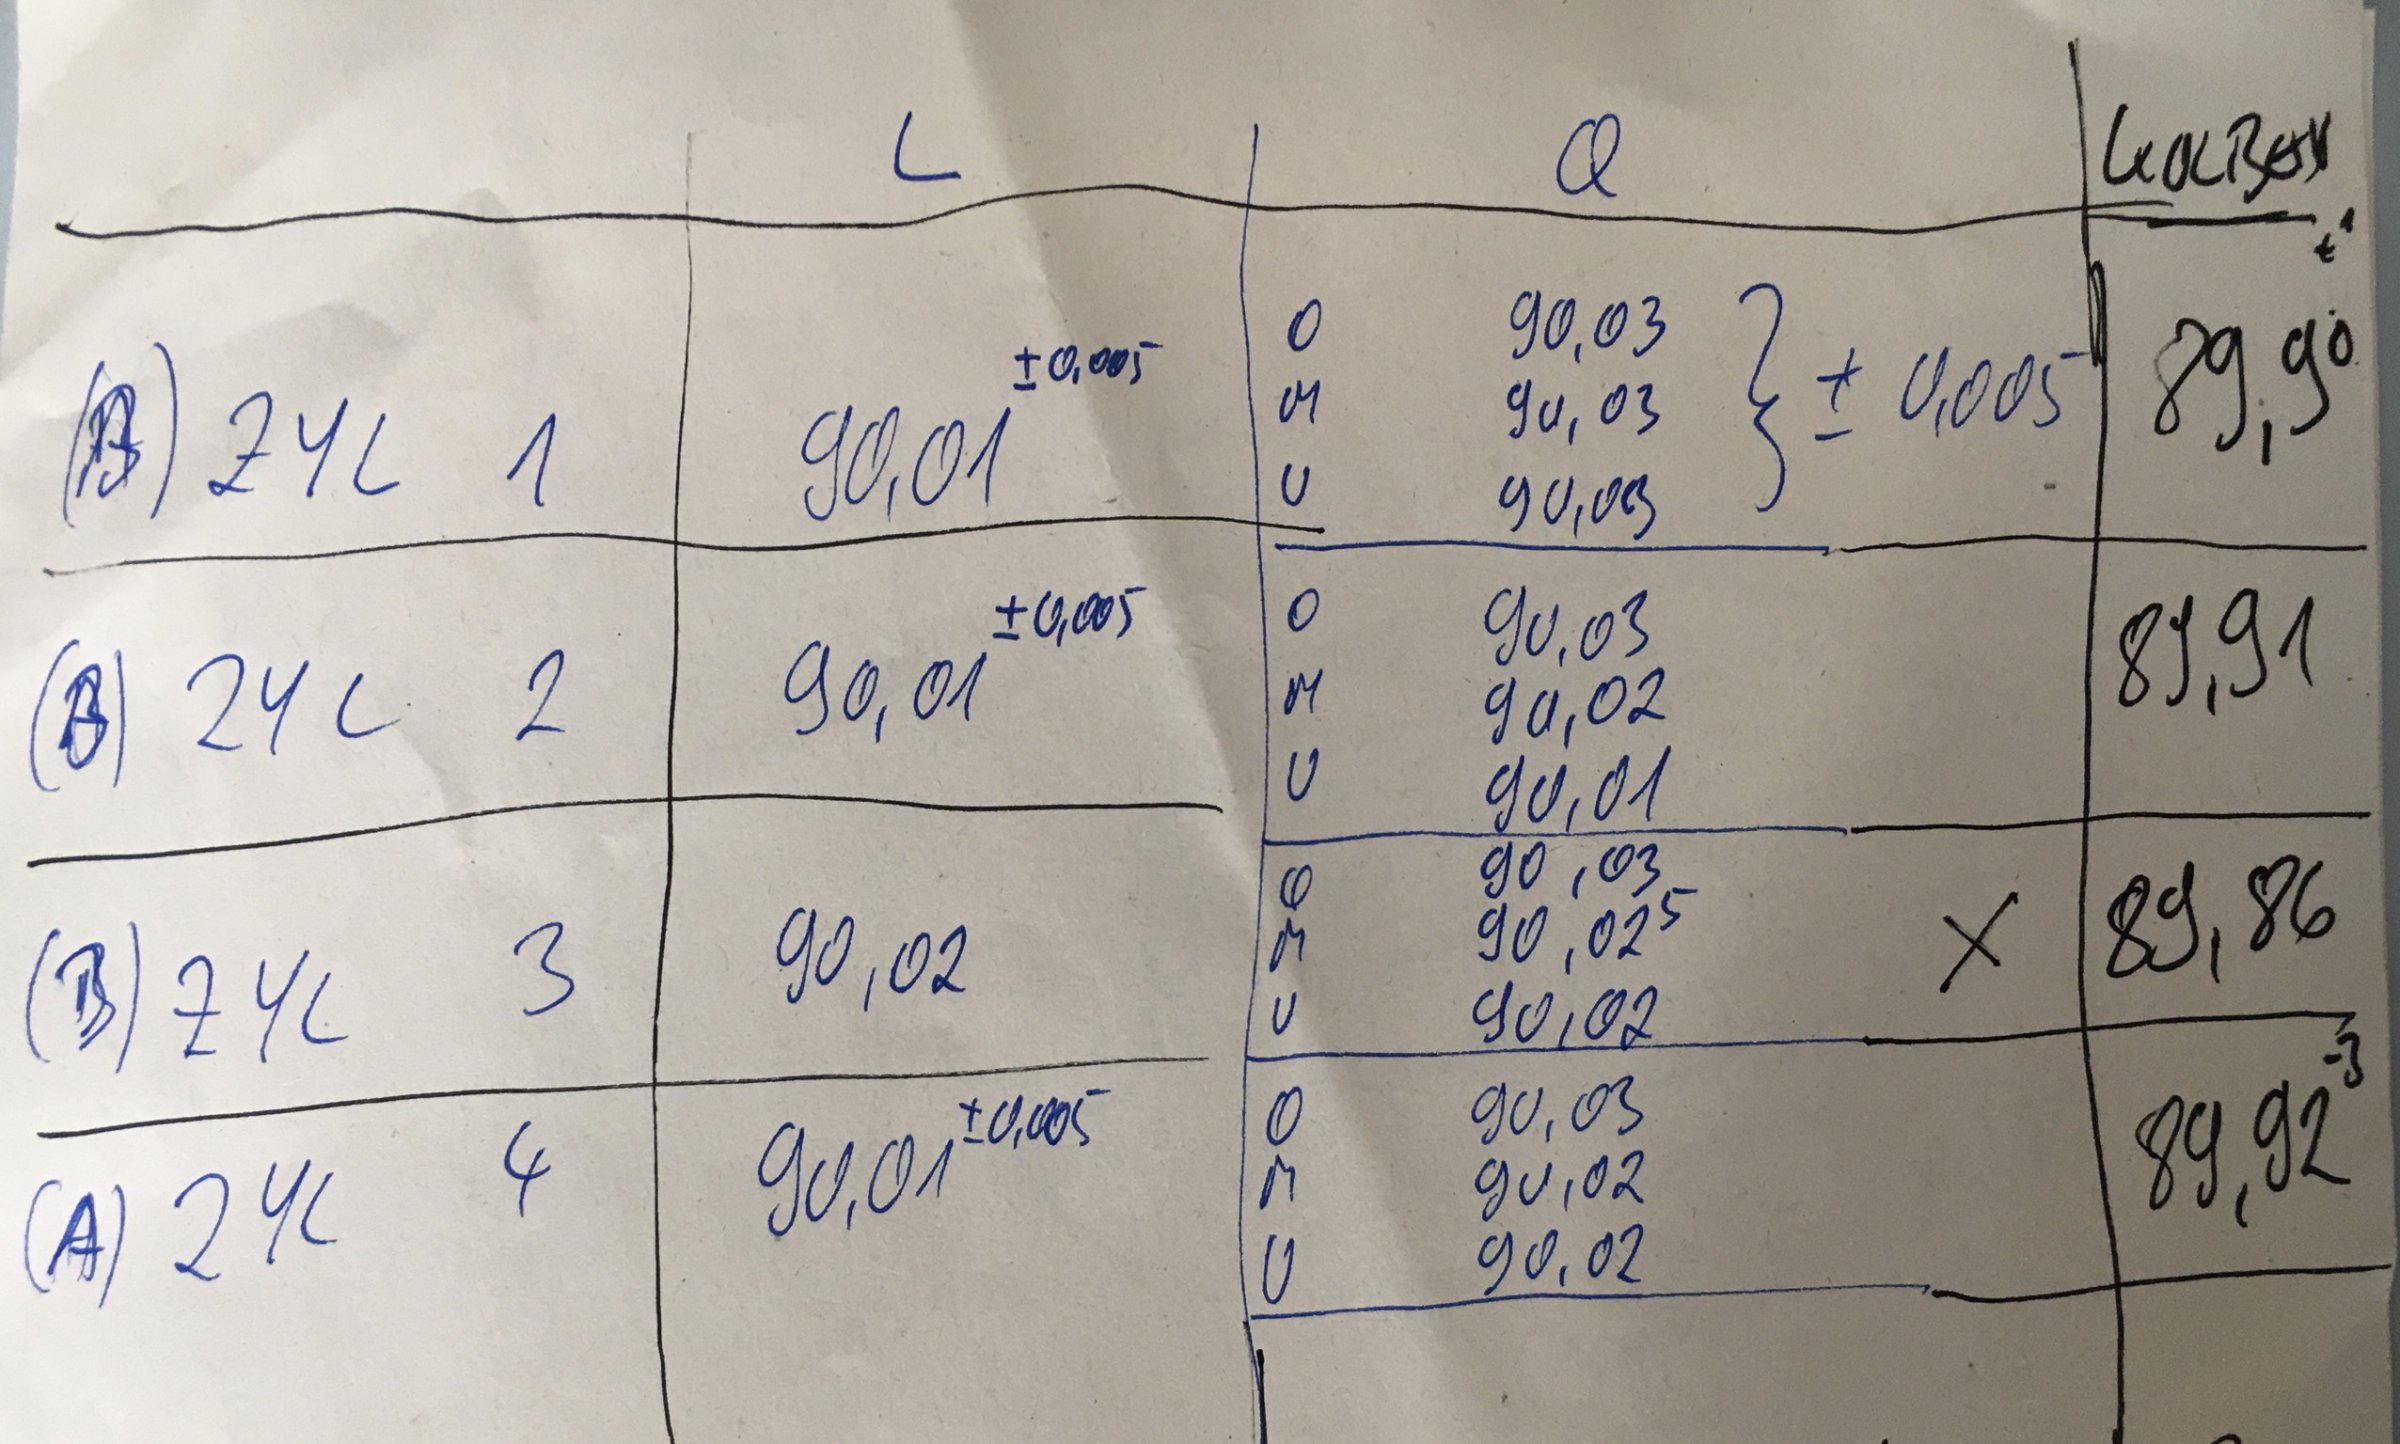 L Q KOLBEN
(B) ZYL 1 90,01 ±0,005 O 90,03 ± 0,005 89,90
M 90,03
U 90,03
(B) ZYL 2 90,01 ±0,005 O 90,03 89,91
M 90,02
U 90,01
(B) ZYL 3 90,02 O 90,03 X 89,86
M 90,02⁵
U 90,02
(A) ZYL 4 90,01 ±0,005 O 90,03 89,92 -3
M 90,02
U 90,02